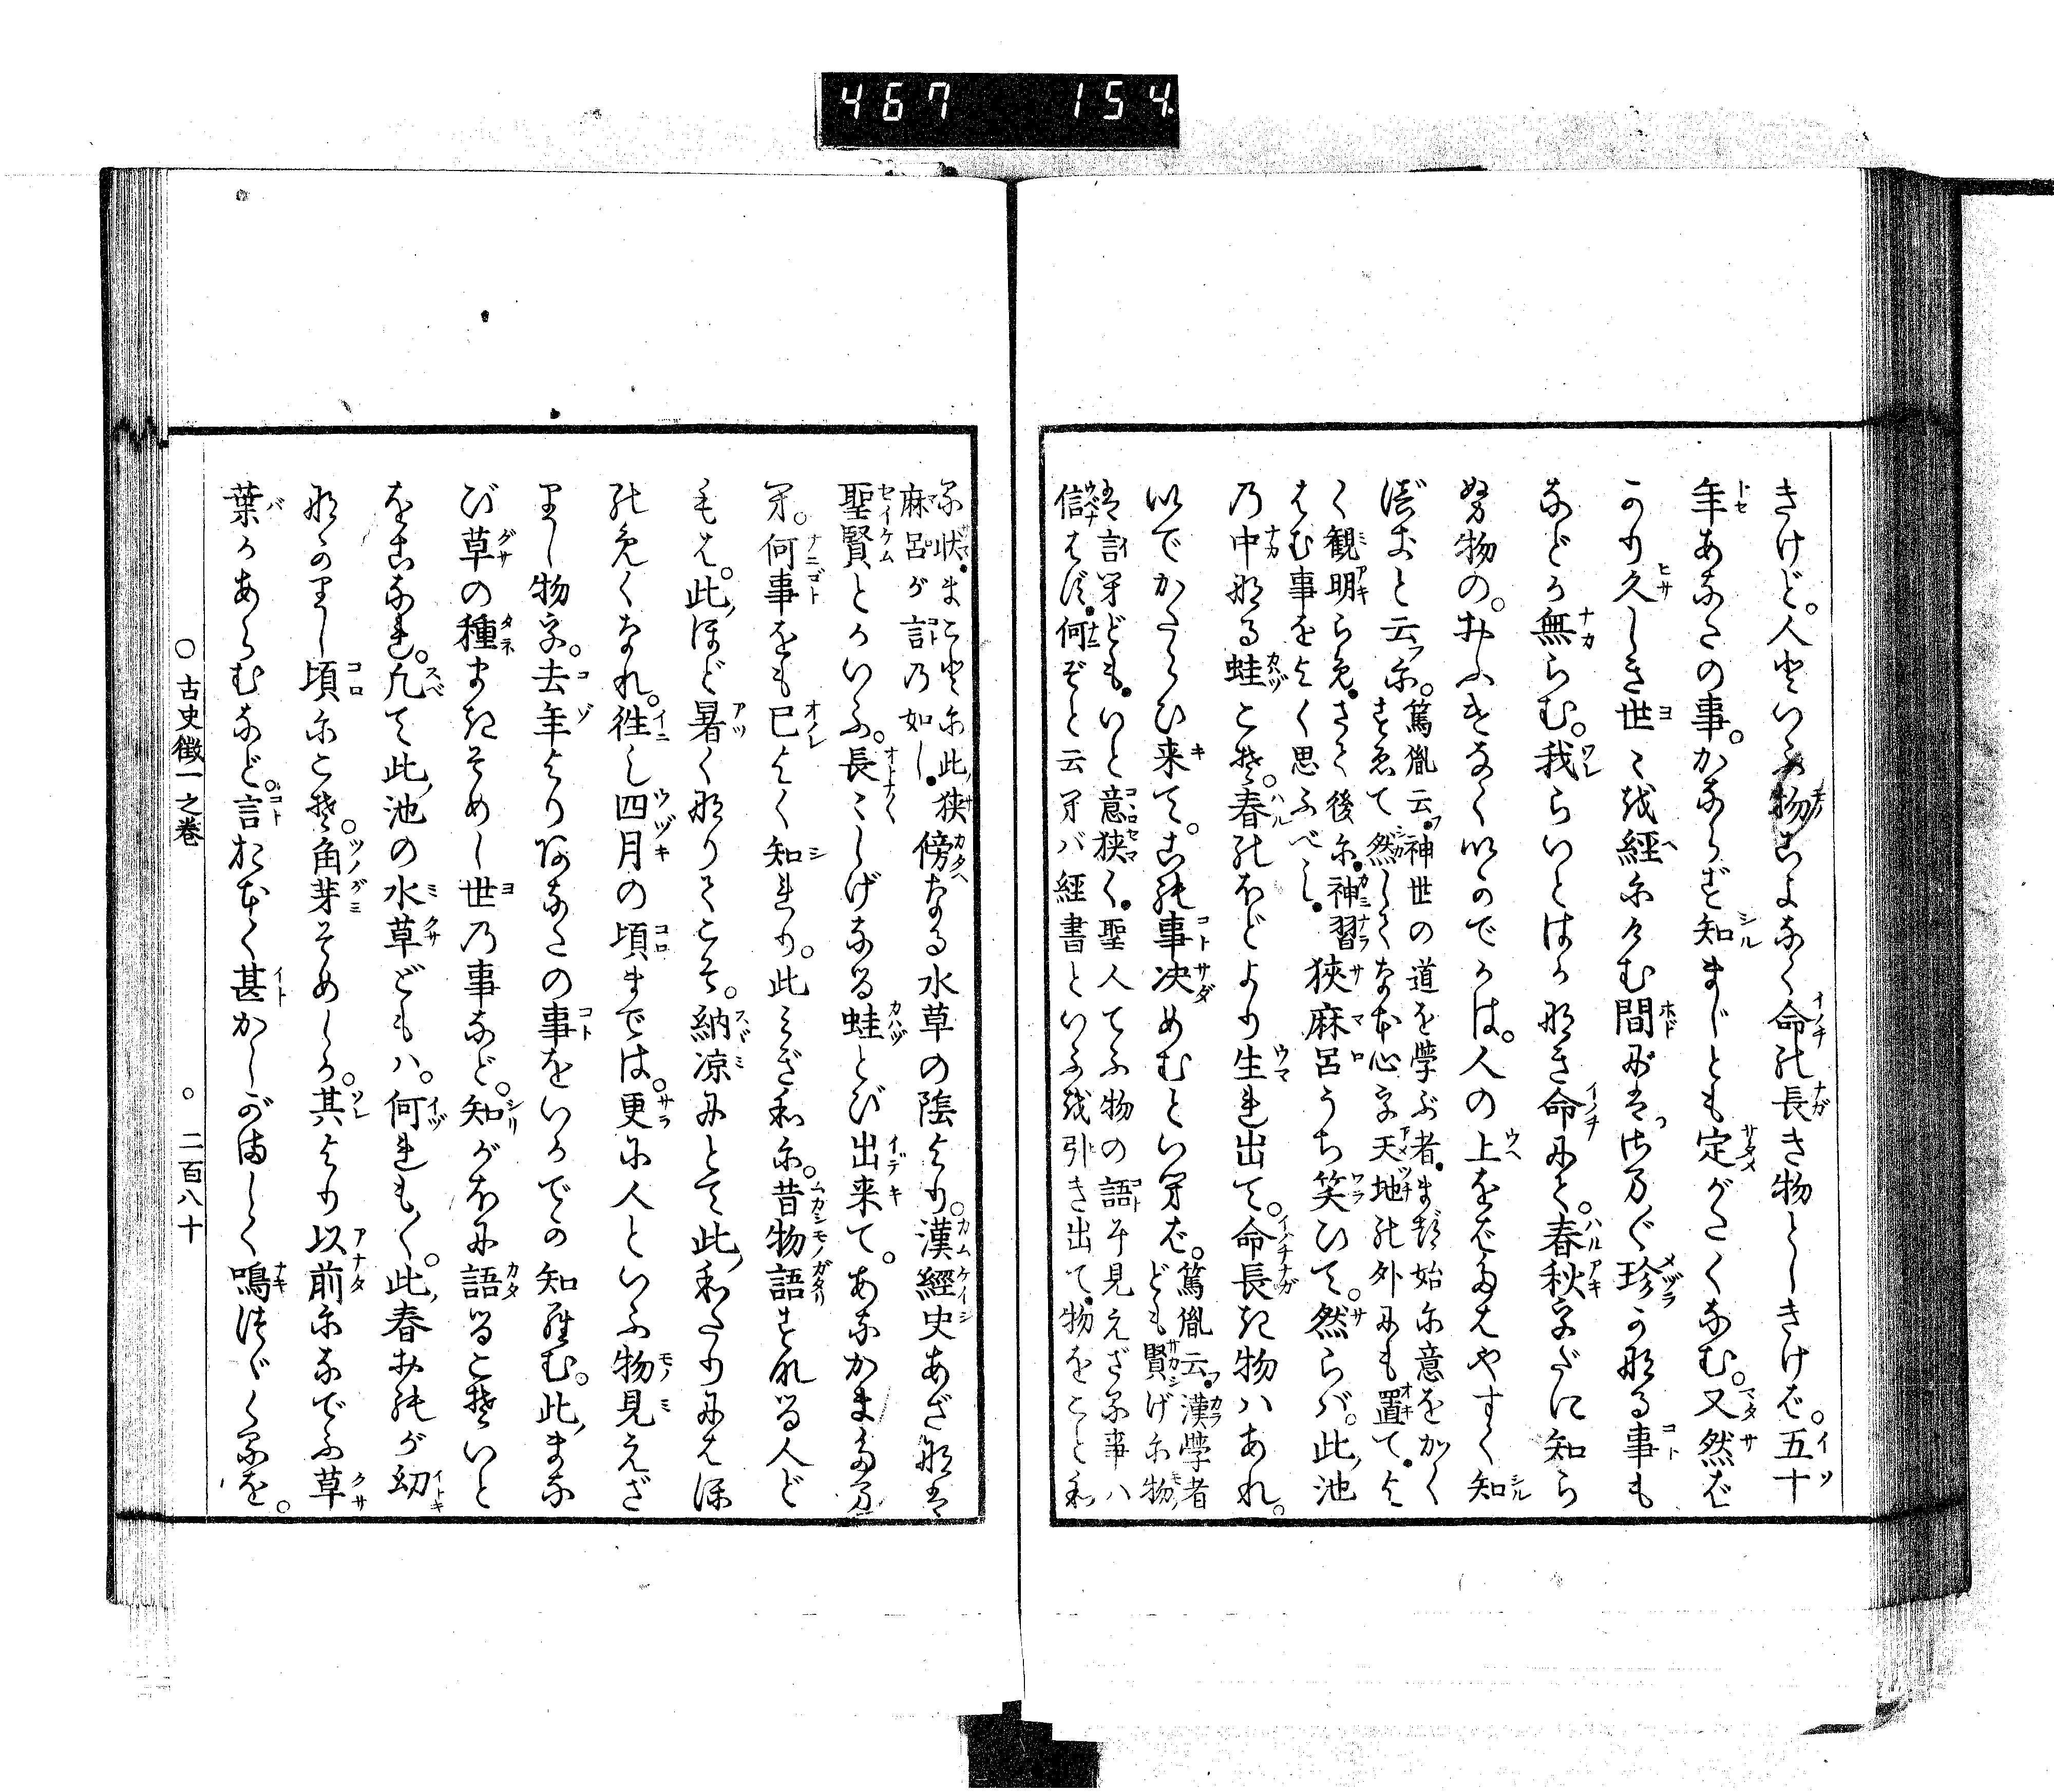 467 154
きけど。人といふ物もよなく命の長き物としきけば。五十
年あなたの事。かならず知まじとも定がたくなむ。又然ば
かり久しき世ゝを経にけむ間には。さるべく珍かなる事も
などか無らむ。我らいとはかなき命にて。春秋をだに知ら
ぬ物の。おふけなくいかでかは。人の上をばたはやすく知
得むと云に。
篤胤云。神世の道を学ぶ者。まづ始に意をかく
すゑて然してなほ心を天地の外にも置て。よ
く観明らめ。さて後に。神習
はむ事をよく思ふべし。
狭麻呂うち笑ひて。然らば。此池
の中なる蛙こそ。春のほどより生れ出て。命長き物ハあれ。
いでかたらひ来て。この事決めむといへば。
篤胤云。漢学者
ども賢げに物
は言へども。いと意狭く。聖人てふ物の語に見えざる事ハ
信はず。何ぞと云へバ経書といふを引き出て。物をことわ
る状。まことに此狭
麻呂が言の如し。
傍なる水草の陰より。漢経史あざなは
聖賢とかいふ。長ゝしげなる蛙とび出来て。あなかまたまへ。
何事をも己よく知れり。此ころわに。昔物語すれる人ど
もは。此ほど暑くなりてこそ。納涼にとて此わたりにはほ
のめくなれ。往し四月の頃までは。更に人といふ物見えざ
りし物を。去年よりあなたの事をいかでか知らむ。此まな
び草の種まきそめし世の事など。知がほに語るこそいと
をこなれ。凡て此池の水草どもハ。何れもく。此春おのが幼
なかりし頃にこそ。角芽そめしか。其より以前になでふ草
葉かあらむなど。言おほく甚かしがましく鳴つゞくるを。
○古史徴一之巻 ○二百八十